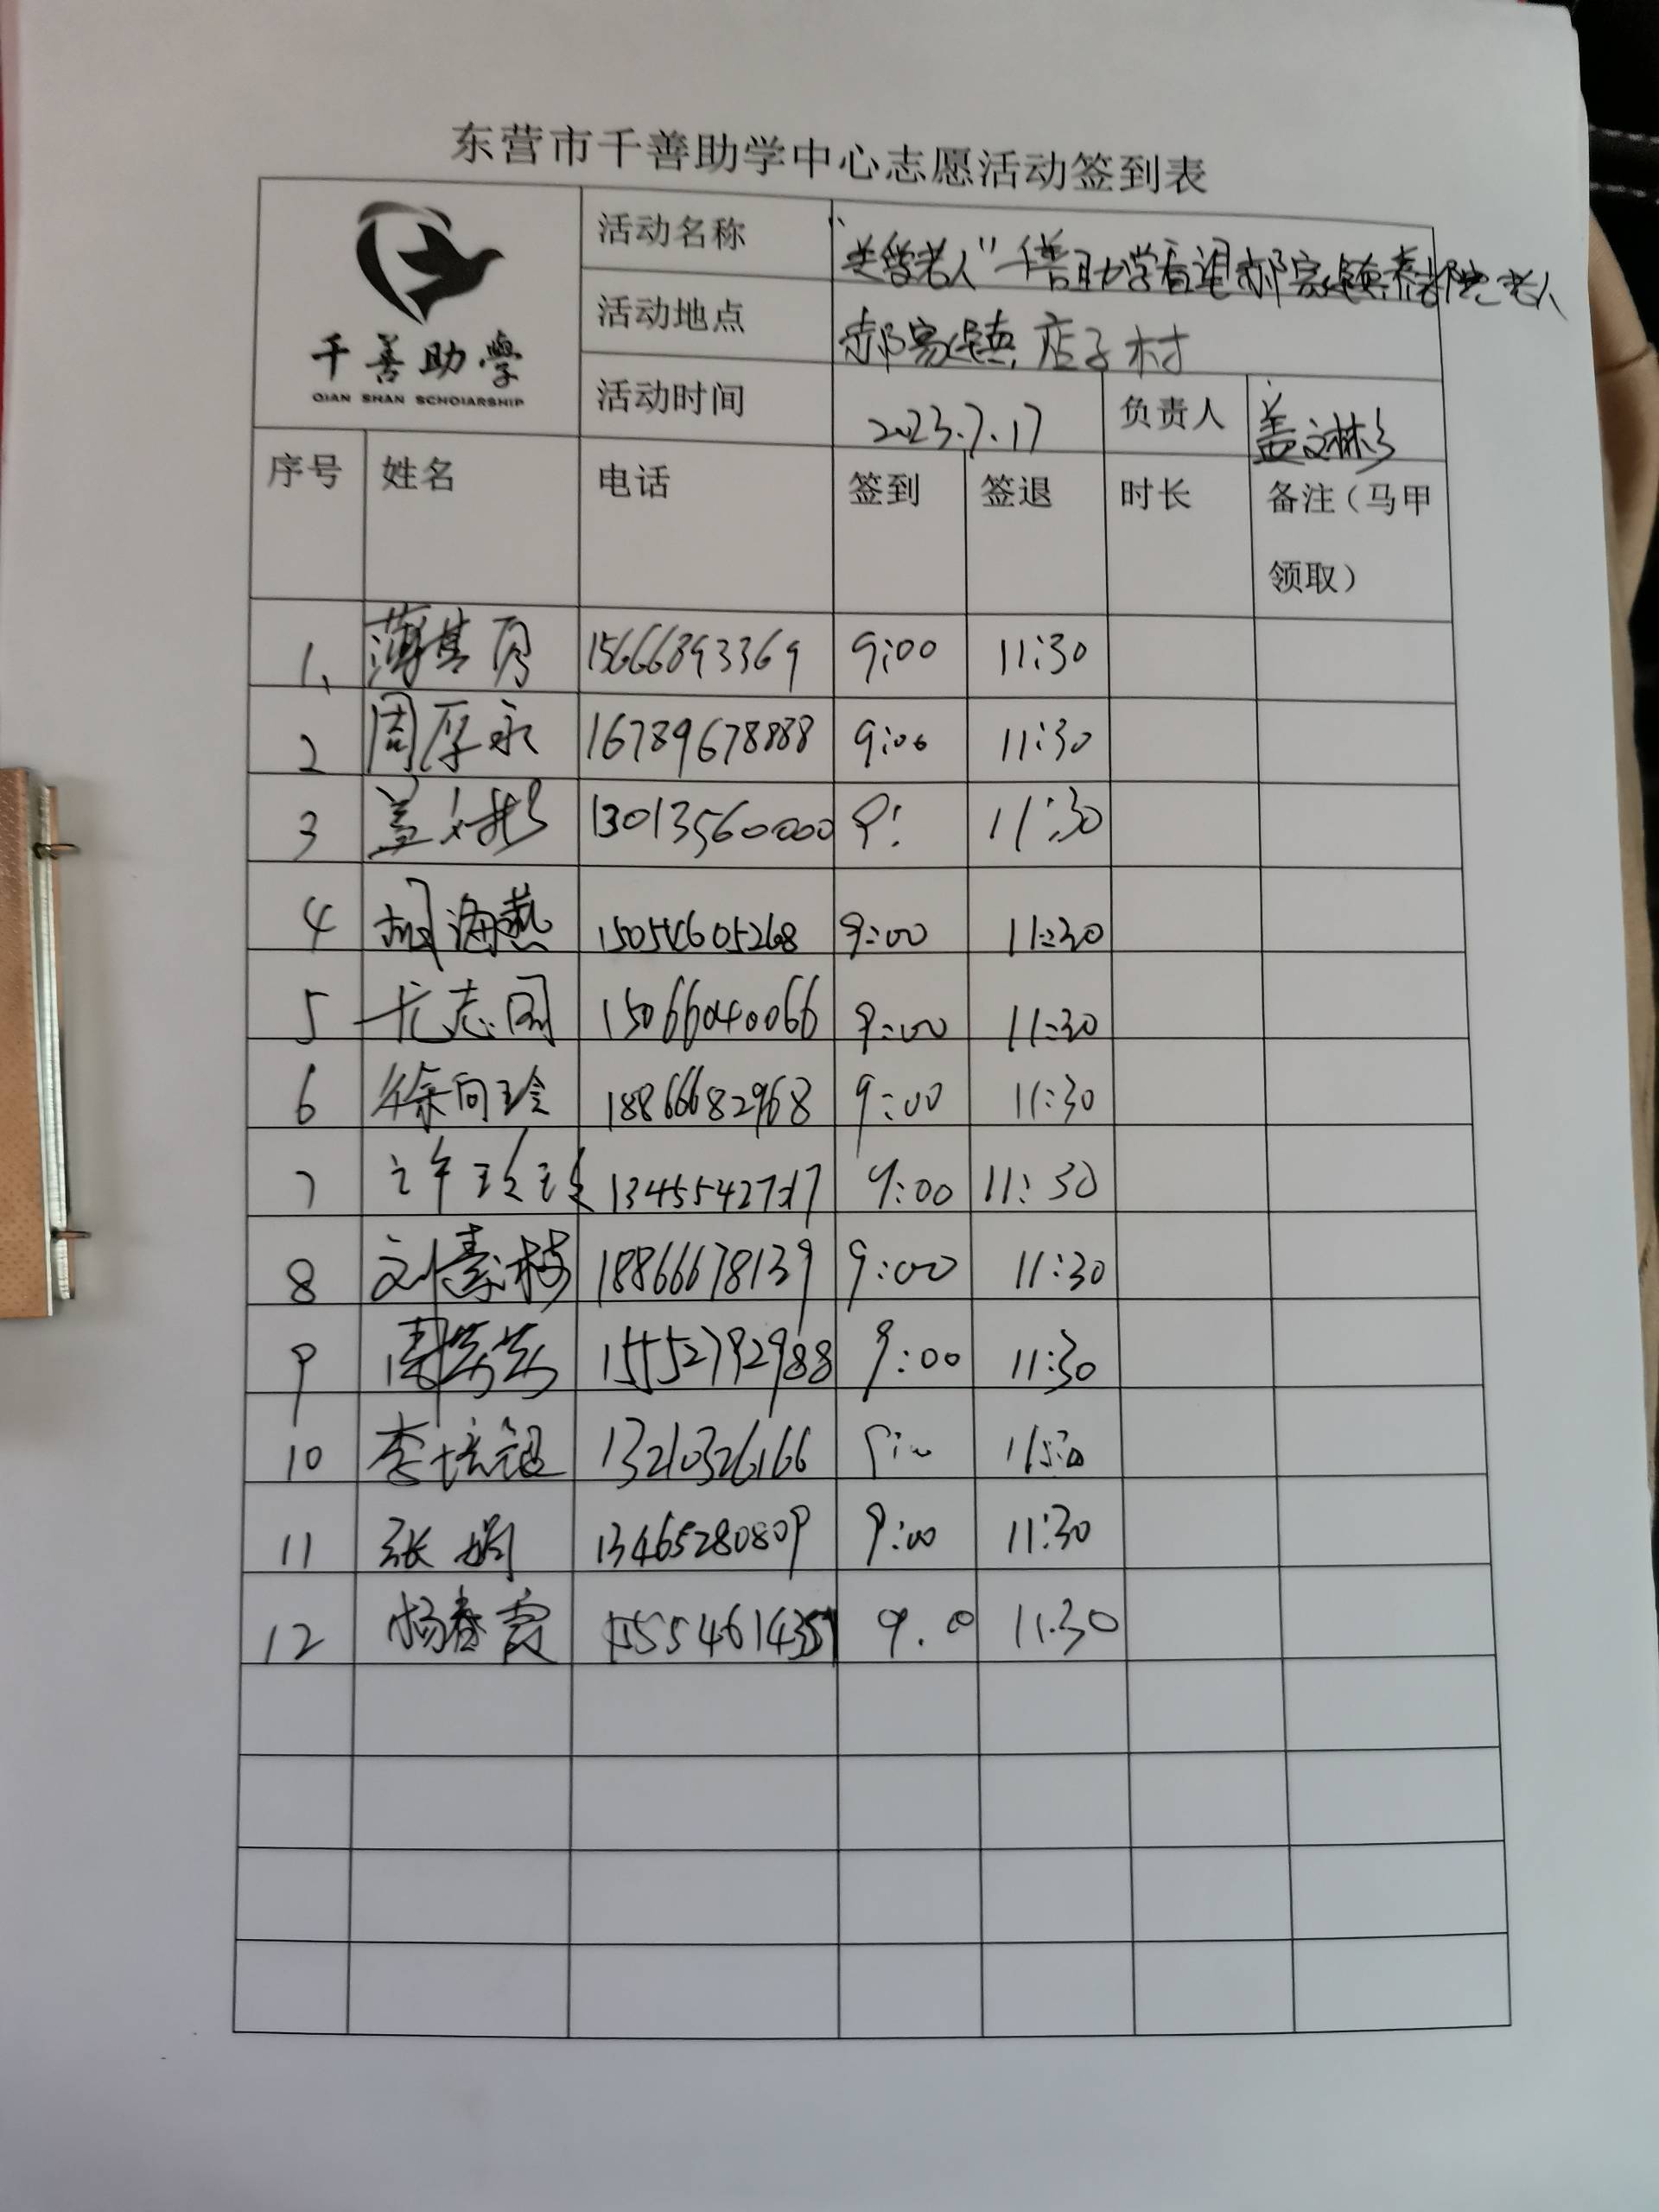 东营市千善助学中心志愿活动签到表
千善助學
QIAN SHAN SCHOLARSHIP
活动名称 "关爱老人"千善助学看望郝家镇养老院老人
活动地点 郝家镇店子村
活动时间 2023.7.17 负责人 盖文彬
序号 姓名 电话 签到 签退 时长 备注(马甲领取)
1、 薄其月 15666893369 9:00 11:30
2 周厚永 16789678888 9:00 11:30
3 盖文彬 13013560000 9: 11:30
4 胡海燕 15054605268 9:00 11:30
5 尤志国 15066040066 9:00 11:30
6 徐向玲 18866682968 9:00 11:30
7 许玫玫 13455427217 9:00 11:30
8 刘素梅 18866678139 9:00 11:30
9 周芳芳 15552792988 9:00 11:30
10 李 13210326166 11:30
11 张娟 13465280809 9:00 11:30
12 杨春霞 9.0 11.30